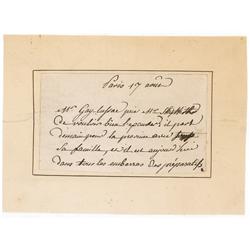 Paris 17 août
Mr. Gay-lussac prie Mr.
de vouloir bien l'excuser il part
demain pour la province avec
sa famille, et il est aujourd'hui
dans tous les embarras des préparatifs